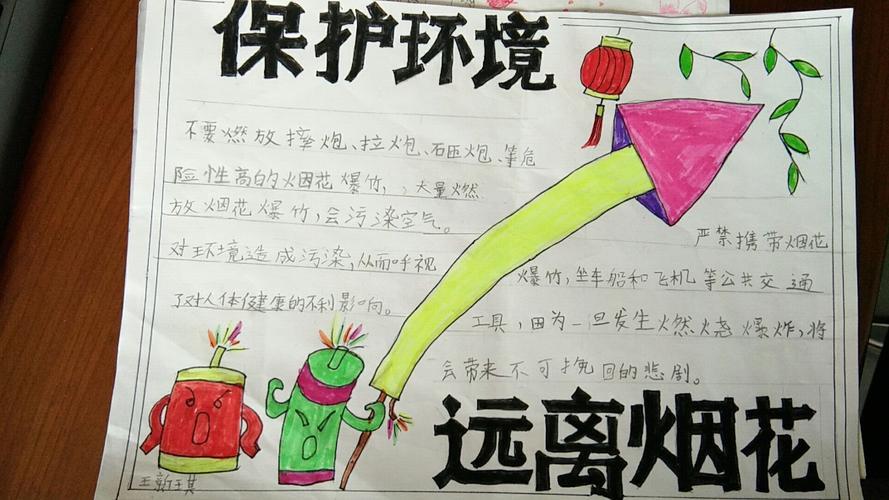 保护环境
不要燃放摔炮、拉炮、石匝炮、等危
险性高的烟花爆竹,，大量燃
放烟花爆竹，会污染空气。
对环境造成污染，从而呼视
了对人体健康的不利影响。
严禁携带烟花
爆竹，坐车船和飞机等公共交通
工具，因为一旦发生燃烧爆炸，将
会带来不可挽回的悲剧。
远离烟花
王新琪